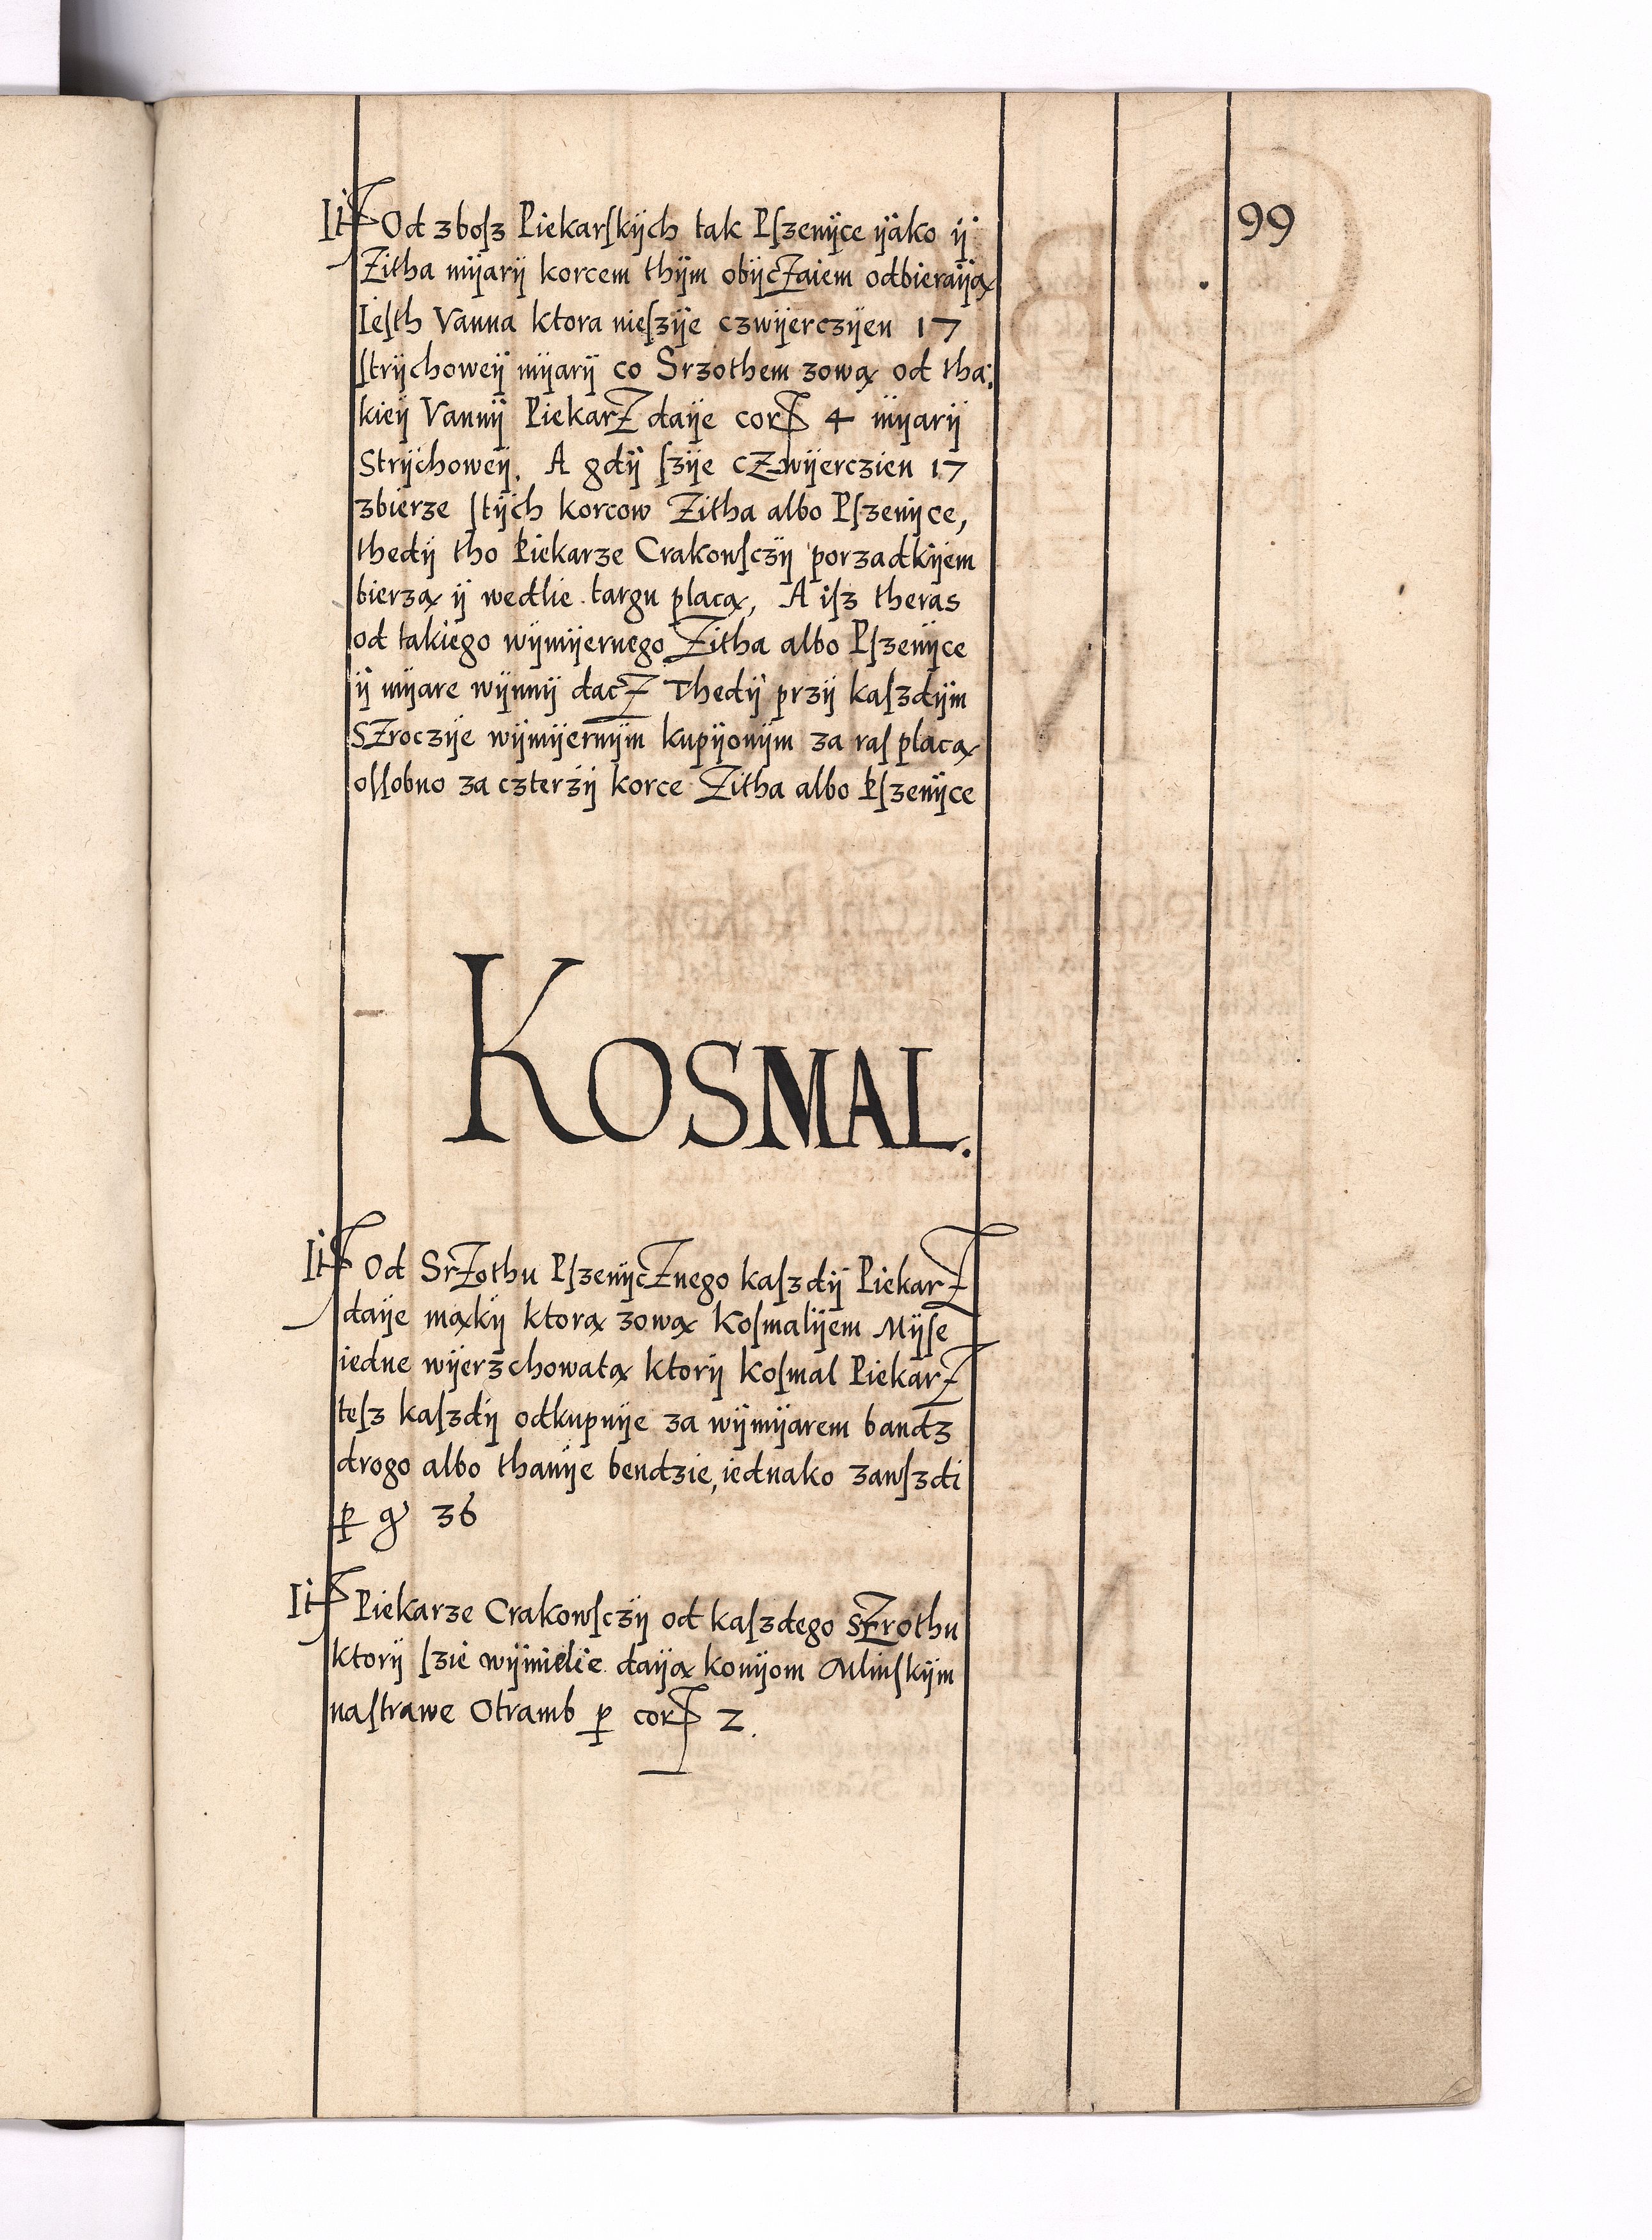 99
It Od zboſz Piekarſkÿch tak Pſzenÿce ÿako ÿ
Zitha mÿarÿ korcem thÿm obÿcZaiem odbieraÿą
Ieſth Vanna ktora nieſzÿe czwÿerczÿen 17
ſtrÿchoweÿ mÿarÿ co Srzothem zową od tha:
kieÿ Vannÿ PiekarZ daÿe cor 4 mÿarÿ
Strÿchoweÿ. A gdÿ ſzÿe cZwÿerczien 17
zbierze ſtÿch korcow Zitha albo Pſzenÿce,
thedÿ tho Piekarze Crakowſczÿ porzadkÿem
bierzą ÿ wedlie targu placą, A iſz theras
od takiego wÿmÿernego Zitha albo Pſzenÿce
ÿ mÿare wÿnnÿ dacZ Thedÿ przÿ kaſzdÿm
SZroczÿe wÿmÿernÿm kupÿonÿm za raſ placą
oſſobno za czterzÿ korce Zitha albo Pſzenÿce
KOSMAL.
It Od SrZothu PſzenÿcZnego kaſzdÿ PiekarZ
daÿe mąkÿ ktorą zową Koſmalÿem Mÿſe
iedne wÿerzchowatą ktorÿ Koſmal PiekarZ
teſz kaſzdÿ odkupuÿe za wÿmÿarem bandz
drogo albo thanÿe bendzie, iednako zawſzdi
ꝑ g 36
It Piekarze Crakowſczÿ od kaſzdego sZrothu
ktorÿ ſzie wÿmielie daÿą konÿom Mlinſkÿm
naſtrawe Otramb ꝑ cor 2.